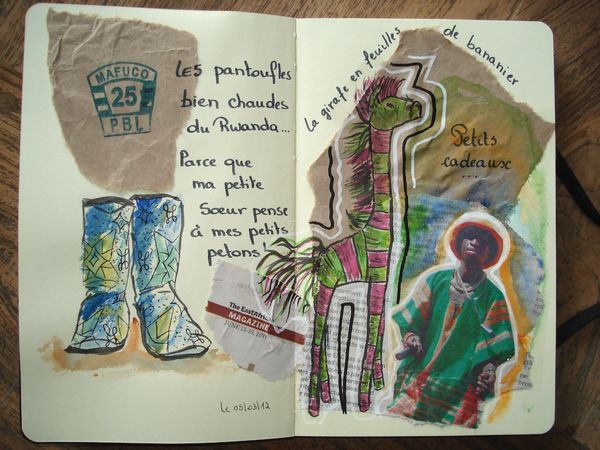 MAFUCO
25
PBL
LES pantoufles
bien chaudes
du Rwanda...
Parce que
ma petite
Soeur pense
à mes petits
petons !
The EastAfric
MAGAZINE
JUNE 13-19, 2011
Le 05/03/12
la girafe en feuilles
de bananier
Petits
cadeaux
...